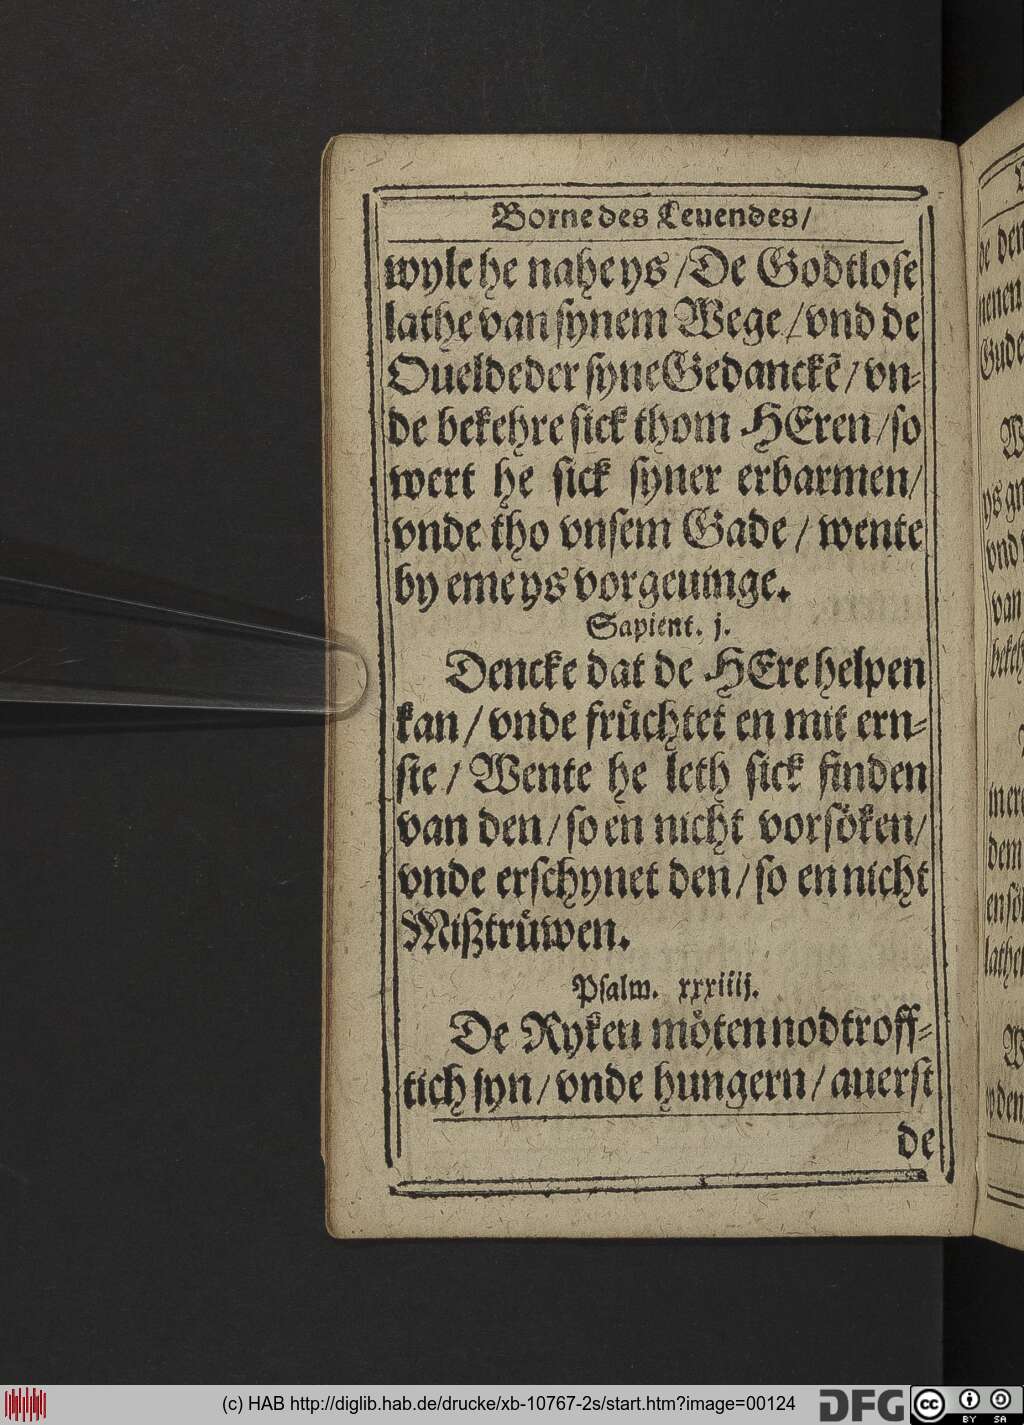 Borne des Leuendes/
wyle he nahe ys / De Godtlose
lathe van synem Wege / vnd de
Oueldeder syne Gedanckẽ / vn-
de bekehre sick thom HEren / so
wert he sick syner erbarmen/
vnde tho vnsem Gade / wente
by eme ys vorgeuinge.
Sapient. j.
Dencke dat de HEre helpen
kan / vnde früchtet en mit ern-
ste / Wente he leth sick finden
van den / so en nicht vorsöken/
vnde erschynet den / so en nicht
Mißtrüwen.
Psalm. xxxiiij.
De Ryken möten nodtroff-
tich syn / vnde hungern / auerst
de
de den
nenen
Gude
ys
vnd
van
dem
(c) HAB http://diglib.hab.de/drucke/xb-10767-2s/start.htm?image=00124
DFG
cc
BY SA